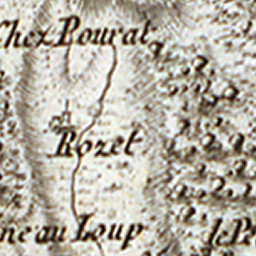 Chez Pourat
Rozet
ne au Loup
le Pe